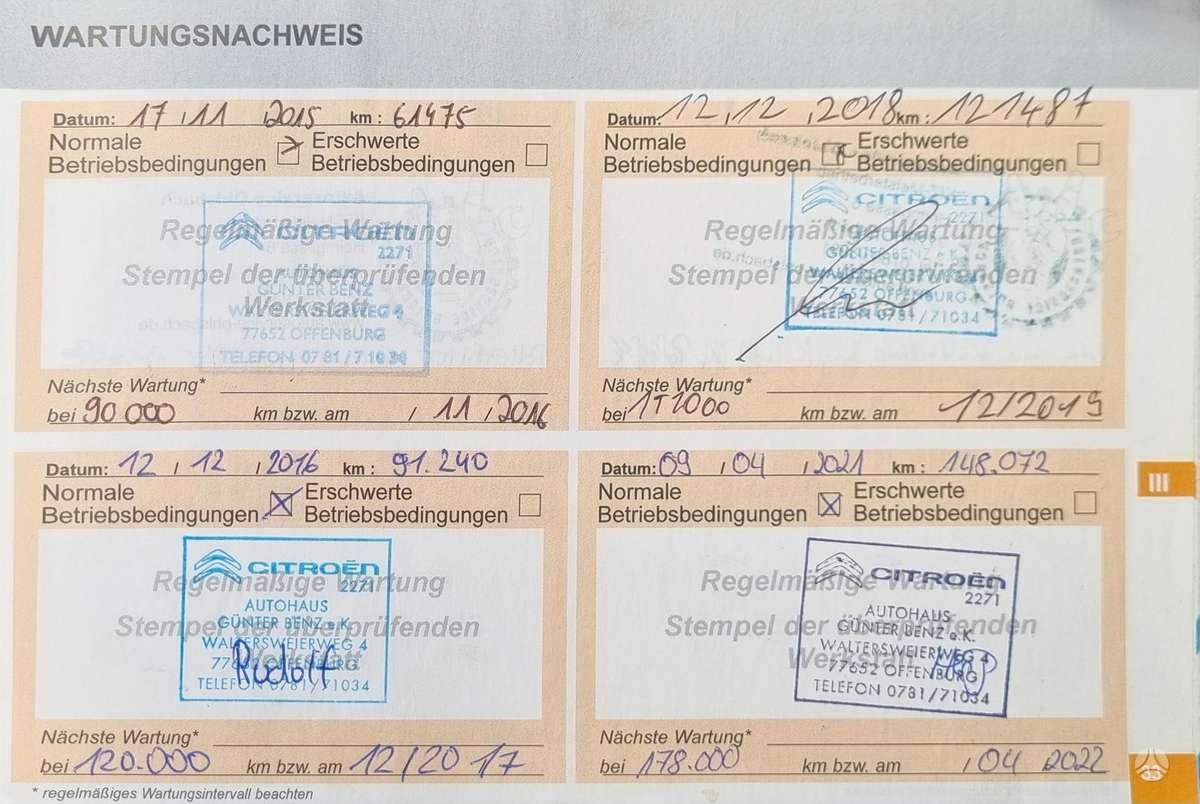 WARTUNGSNACHWEIS
Datum: 17 / 11 / 2015 km : 61475
Normale Betriebsbedingungen
Erschwerte Betriebsbedingungen
Regelmäßige Wartung
Stempel der überprüfenden
Werkstatt
CITROËN
2271
AUTOHAUS
GÜNTER BENZ
WALTERSWEIERWEG 4
77652 OFFENBURG
TELEFON 0781/71034
Nächste Wartung*
bei 90 000 km bzw. am / 11 / 2016
Datum: 12 / 12 / 2016 km : 91.240
Normale Betriebsbedingungen
Erschwerte Betriebsbedingungen
Regelmäßige Wartung
Stempel der überprüfenden
Werkstatt
CITROËN
2271
AUTOHAUS
GÜNTER BENZ e.K.
WALTERSWEIERWEG 4
77652 OFFENBURG
TELEFON 0781/71034
Rudolf
Nächste Wartung*
bei 120.000 km bzw. am 12/2017
* regelmäßiges Wartungsintervall beachten
Datum: 12, 12, 2018 km : 121487
Normale Betriebsbedingungen
Erschwerte Betriebsbedingungen
Regelmäßige Wartung
Stempel der überprüfenden
Werkstatt
CITROËN
2271
AUTOHAUS
GÜNTER BENZ e.K.
WALTERSWEIERWEG 4
77652 OFFENBURG
TELEFON 0781/71034
Nächste Wartung*
bei km bzw. am 12/2019
Datum: 09 / 04 / 2021 km : 148.072
Normale Betriebsbedingungen
Erschwerte Betriebsbedingungen
Regelmäßige Wartung
Stempel der überprüfenden
Werkstatt
CITROËN
2271
AUTOHAUS
GÜNTER BENZ e.K.
WALTERSWEIERWEG 4
77652 OFFENBURG
TELEFON 0781/71034
Nächste Wartung*
bei 178.000 km bzw. am / 04 2022
III
33